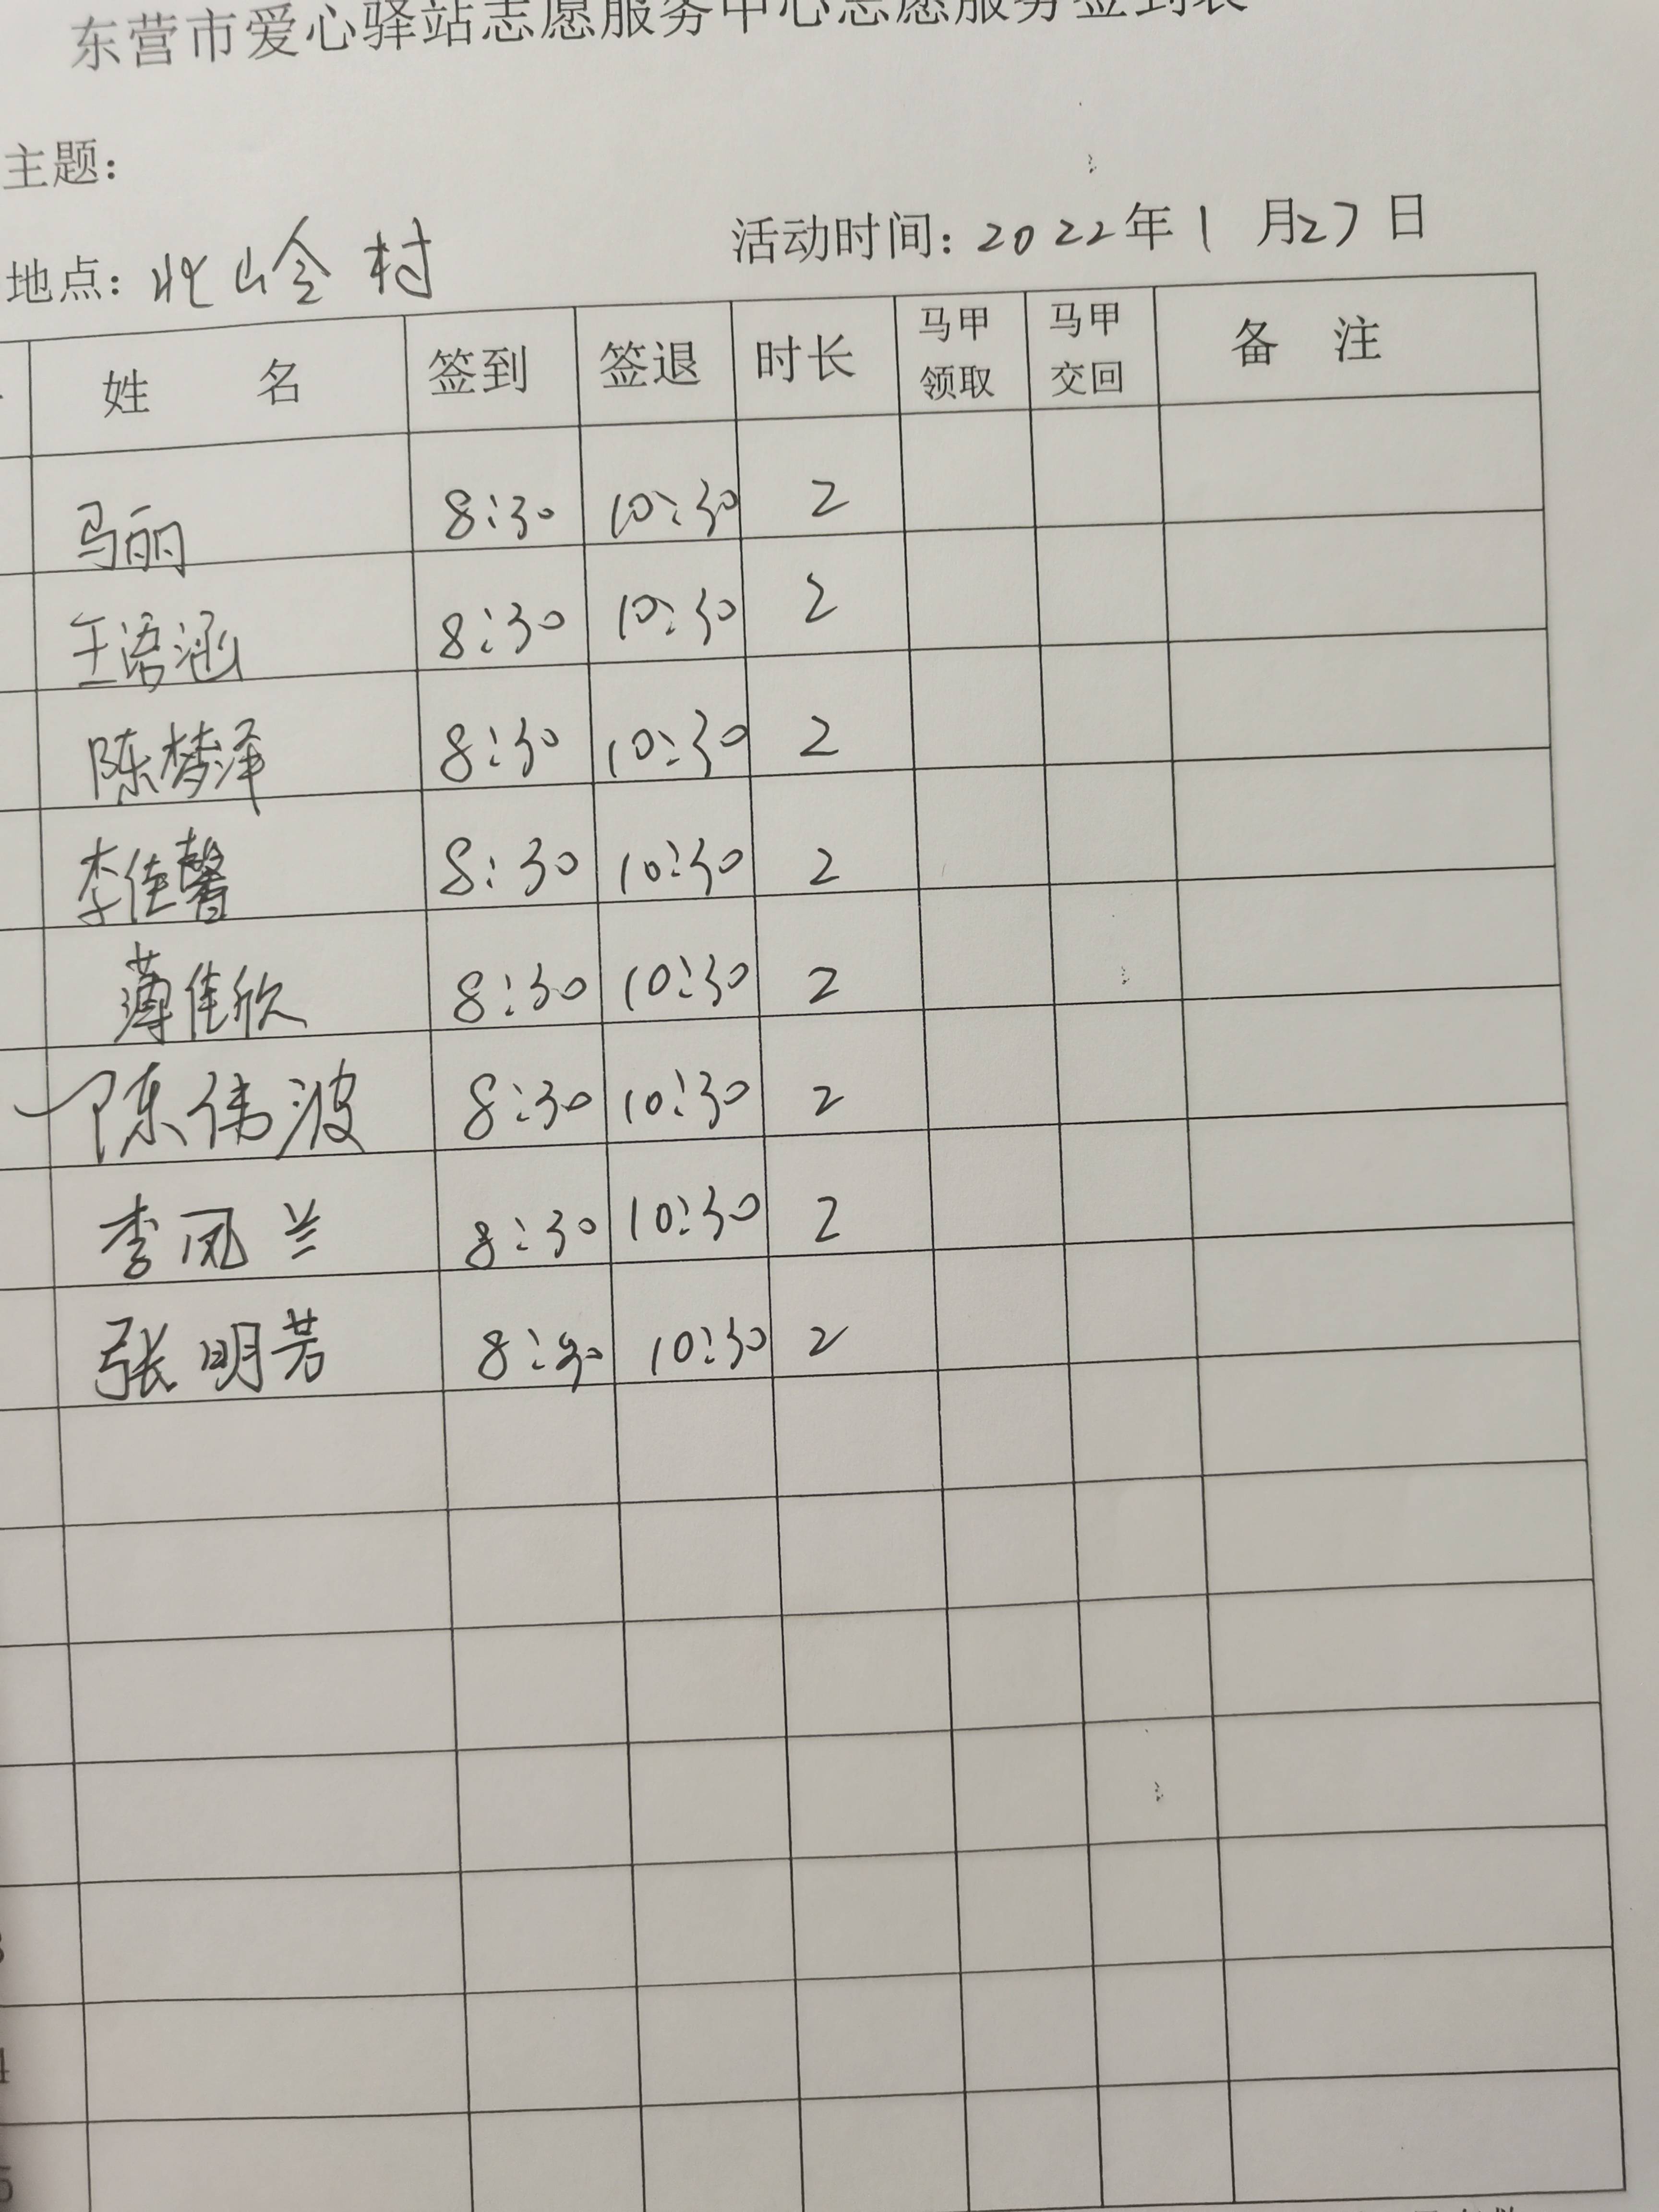 东营市爱心驿站志愿服务中心志愿服务签到表
主题：
地点：北岭村 活动时间：2022年1月27日
姓名 签到 签退 时长 马甲领取 马甲交回 备注
马丽 8:30 10:30 2
王语涵 8:30 10:30 2
陈梦泽 8:30 10:30 2
李佳馨 8:30 10:30 2
薄佳欣 8:30 10:30 2
陈伟波 8:30 10:30 2
李凤兰 8:30 10:30 2
张明芳 8:30 10:30 2